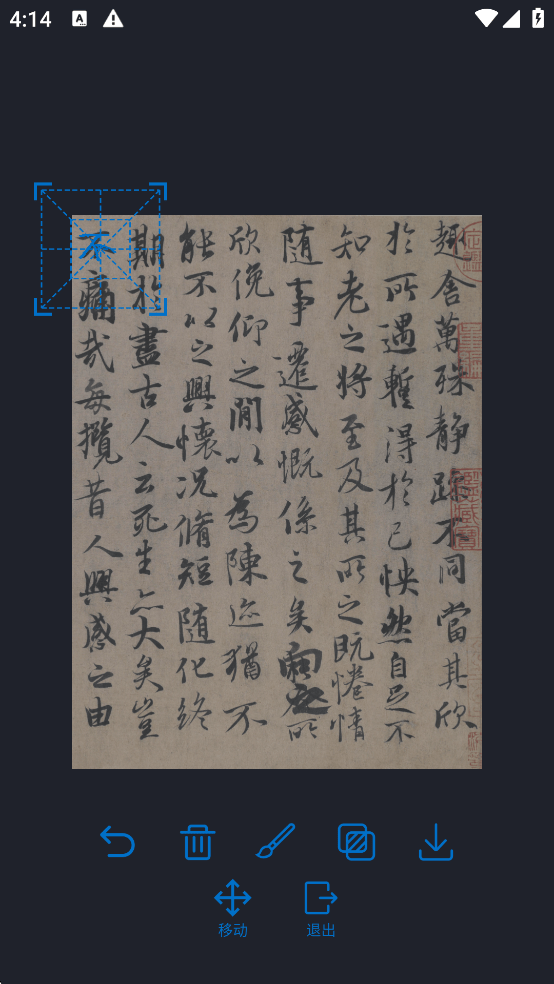 4:14
趣舍萬殊静躁不同當其欣
於所遇暫得於己怏然自足不
知老之將至及其所之既惓情
隨事遷感慨係之矣向之所
欣俛仰之閒以為陳迹猶不
能不以之興懷况脩短隨化終
期於盡古人云死生亦大矣豈
不痛哉每攬昔人興感之由
移动
退出